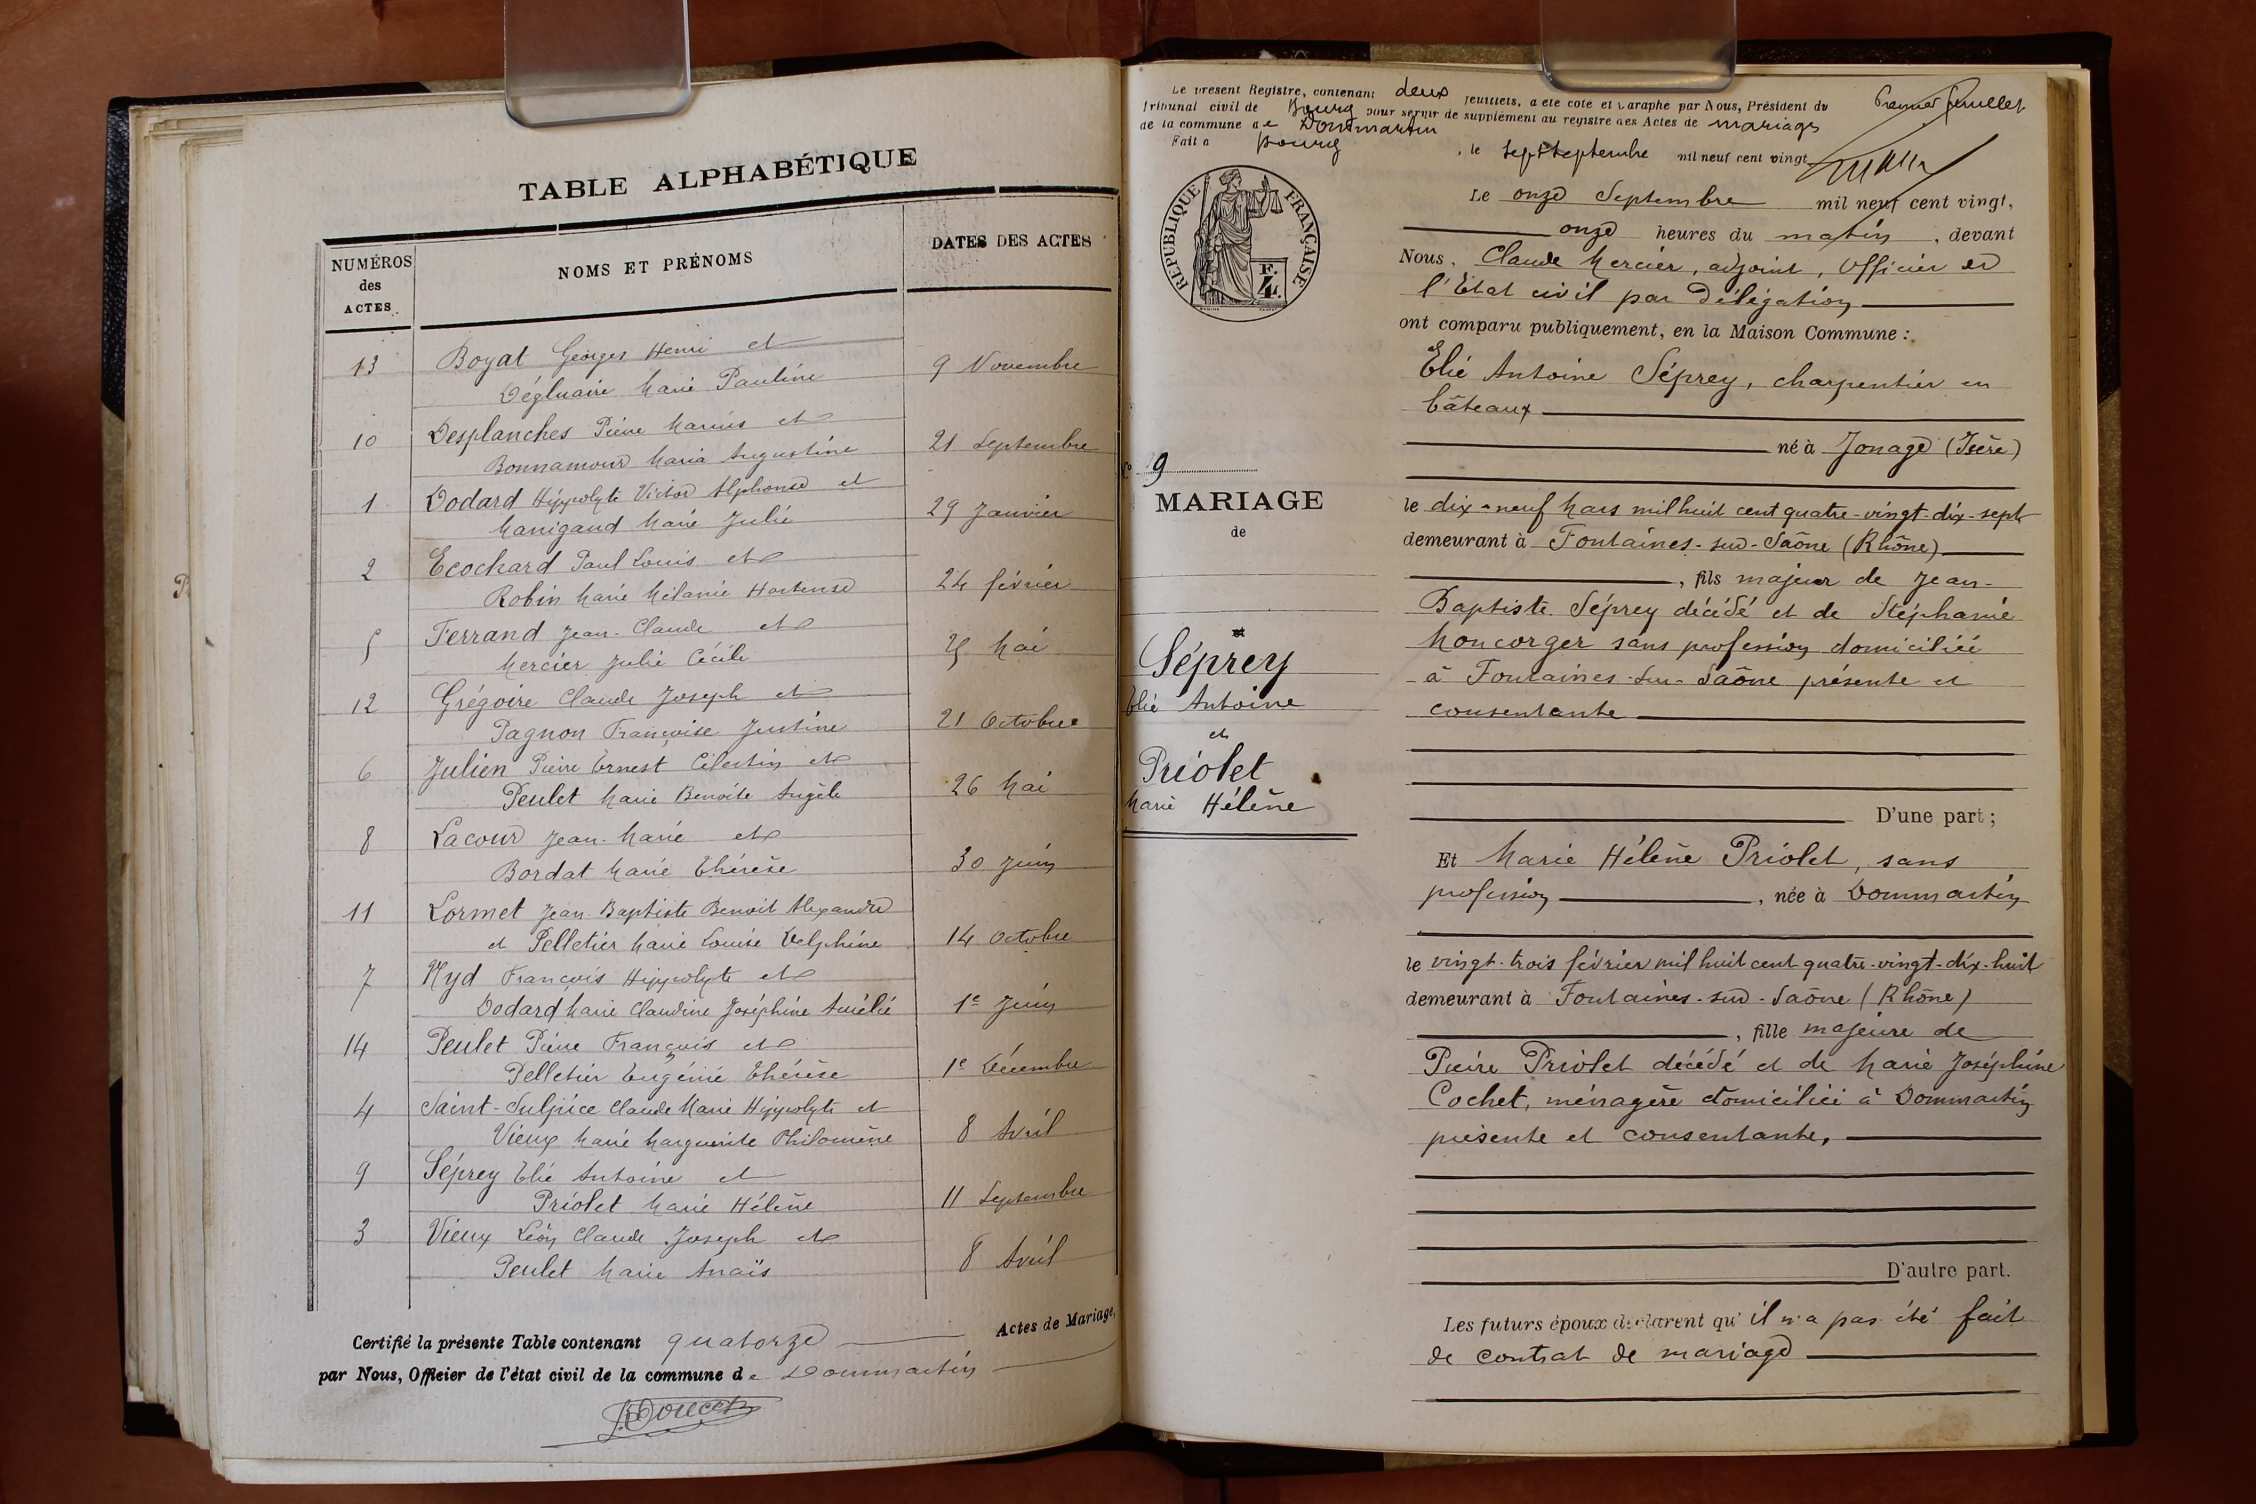 TABLE ALPHABÉTIQUE
NUMÉROS
des
ACTES
NOMS ET PRÉNOMS
DATES DES ACTES
13 Boyat Georges Henri et
Dégluaire Marie Pauline 9 Novembre
10 Desplanches Pierre Marius et
Bonnamour Maria Augustine 21 Septembre
1 Dodard Hippolyte Victor Alphonse et
Manigand Marie Julie 29 Janvier
2 Ecochard Paul Louis et
Robin Marie Mélanie Hortense 24 février
5 Ferrand Jean-Claude et
Mercier Julie Cécile 25 Mai
12 Grégoire Claude Joseph et
Pagnon Françoise Justine 21 Octobre
6 Julien Pierre Ernest Célestin et
Peulet Marie Benoîte Angèle 26 Mai
8 Lacour Jean-Marie et
Bordat Marie Thérèse 30 Juin
11 Lormet Jean-Baptiste Benoit Alexandre
et Pelletier Marie Louise Delphine 14 Octobre
7 Nyd François Hippolyte et
Dodard Marie Claudine Joséphine Amélie 1e Juin
14 Peulet Pierre François et
Pelletier Eugénie Thérèse 1e Décembre
4 Saint-Sulpice Claude Marie Hippolyte et
Vieux Marie Marguerite Philomène 8 Avril
9 Séprey Elie Antoine et
Priolet Marie Hélène 11 Septembre
3 Vieux Léon Claude Joseph et
Peulet Marie Anaïs 8 Avril
Certifié la présente Table contenant quatorze Actes de Mariage,
par Nous, Officier de l'état civil de la commune de Dommartin
Doucet
Le présent Registre, contenant deux feuillets, a été coté et paraphé par Nous, Président du
Tribunal civil de Bourg pour servir de supplément au registre des Actes de mariages
de la commune de Dommartin
Fait à Bourg, le sept septembre mil neuf cent vingt
Premier feuillet
RÉPUBLIQUE FRANÇAISE
F.
4.
No 9
MARIAGE
de
Séprey
Elie Antoine
et
Priolet
Marie Hélène
Le onze Septembre mil neuf cent vingt,
onze heures du matin, devant
Nous, Claude Mercier, adjoint, Officier de
l'Etat civil par Délégation
ont comparu publiquement, en la Maison Commune :
Elie Antoine Séprey, charpentier en
bâteaux
né à Jonage (Isère)
le dix-neuf Mars mil huit cent quatre-vingt-dix-sept
demeurant à Fontaines-sur-Saône (Rhône)
, fils majeur de Jean-
Baptiste Séprey décédé et de Stéphanie
Moncorger sans profession domiciliée
à Fontaines-sur-Saône présente et
consentante
D'une part ;
Et Marie Hélène Priolet, sans
profession, née à Dommartin
le vingt-trois février mil huit cent quatre-vingt-dix-huit
demeurant à Fontaines-sur-Saône (Rhône)
, fille majeure de
Pierre Priolet décédé et de Marie Joséphine
Cochet, ménagère domiciliée à Dommartin
présente et consentante,
D'autre part.
Les futurs époux déclarent qu'il n'a pas été fait
de contrat de mariage